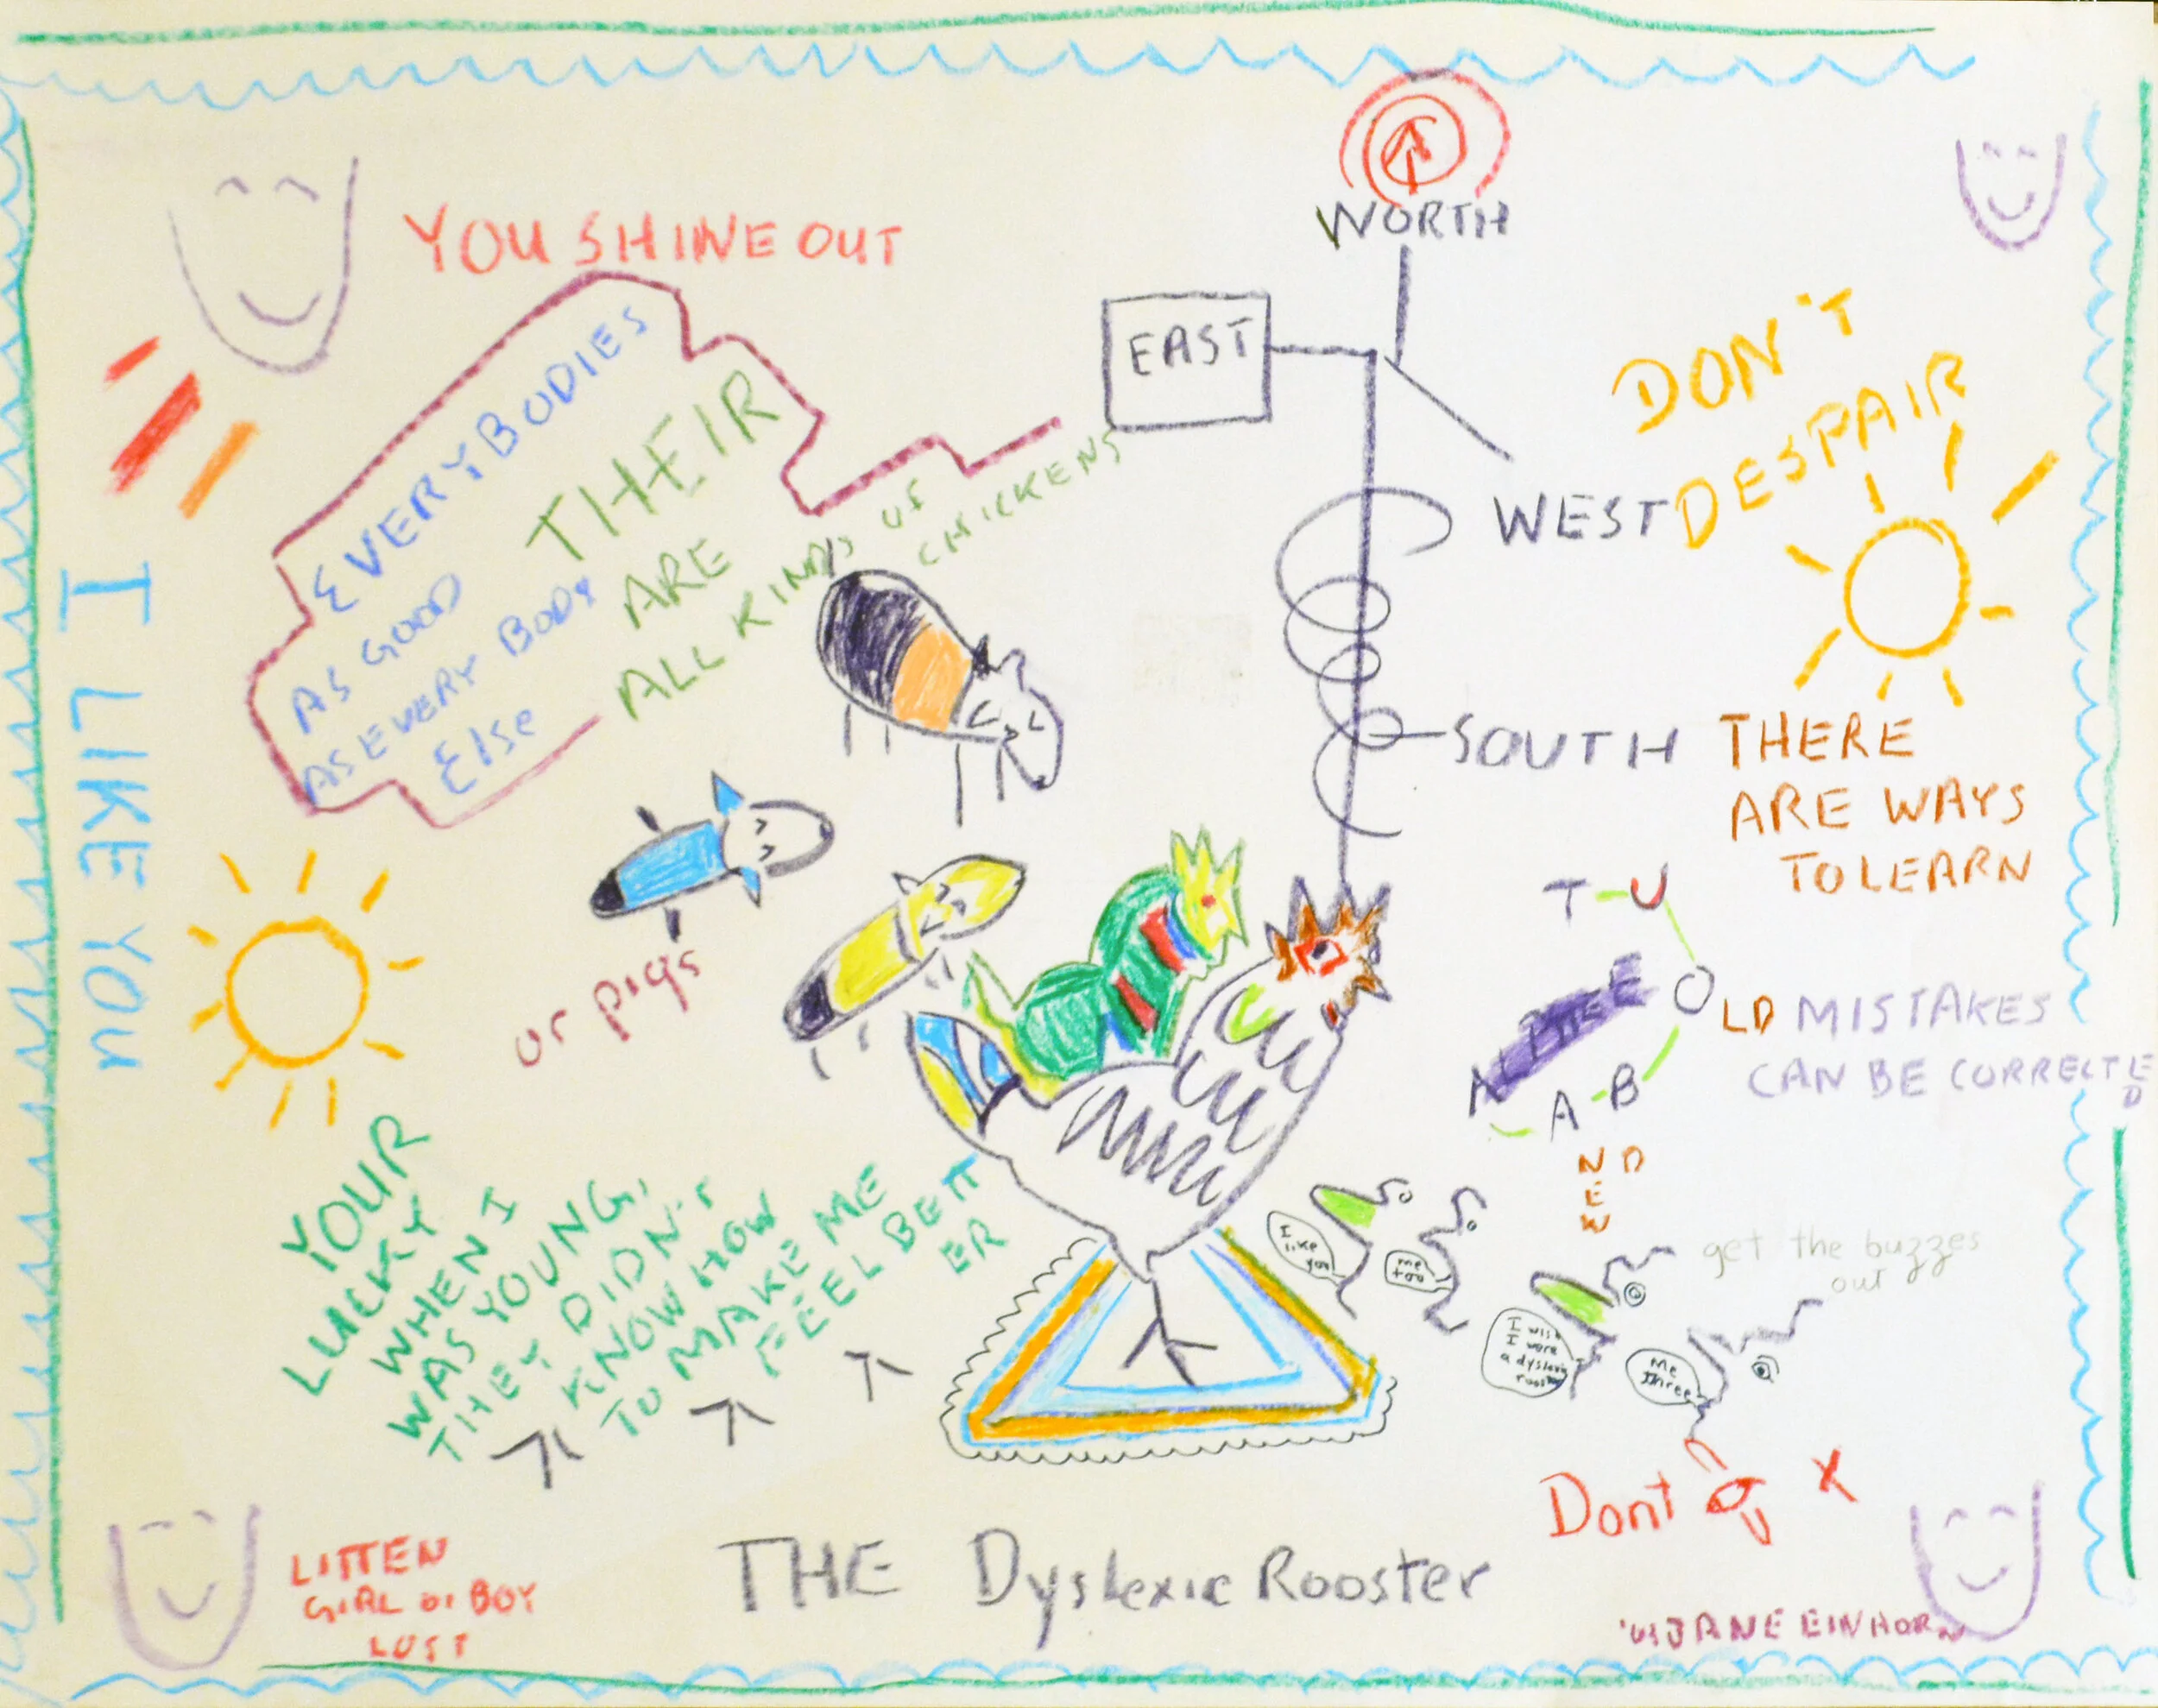 WORTH
YOU SHINE OUT
EAST
WEST
SOUTH
DON'T
DESPAIR
EVERYBODIES
AS GOOD
AS EVERY BODY
Else
THEIR
ARE
ALL KINDS OF
CHICKENS
or pigs
I LIKE YOU
THERE
ARE WAYS
TO LEARN
T U
OLD MISTAKES
CAN BE CORRECTED
A B
N D
E
W
get the buzzes
out
YOUR
LUCKY
WHEN I
WAS YOUNG,
THEY DIDN'T
KNOW HOW
TO MAKE ME
FEEL BETT
ER
I
like
you
me
too
I wish
I were
a dyslexic
rooster
Me
three
Dont
X
THE Dyslexic Rooster
LITTEN
GIRL or BOY
LUST
JANE EINHORN